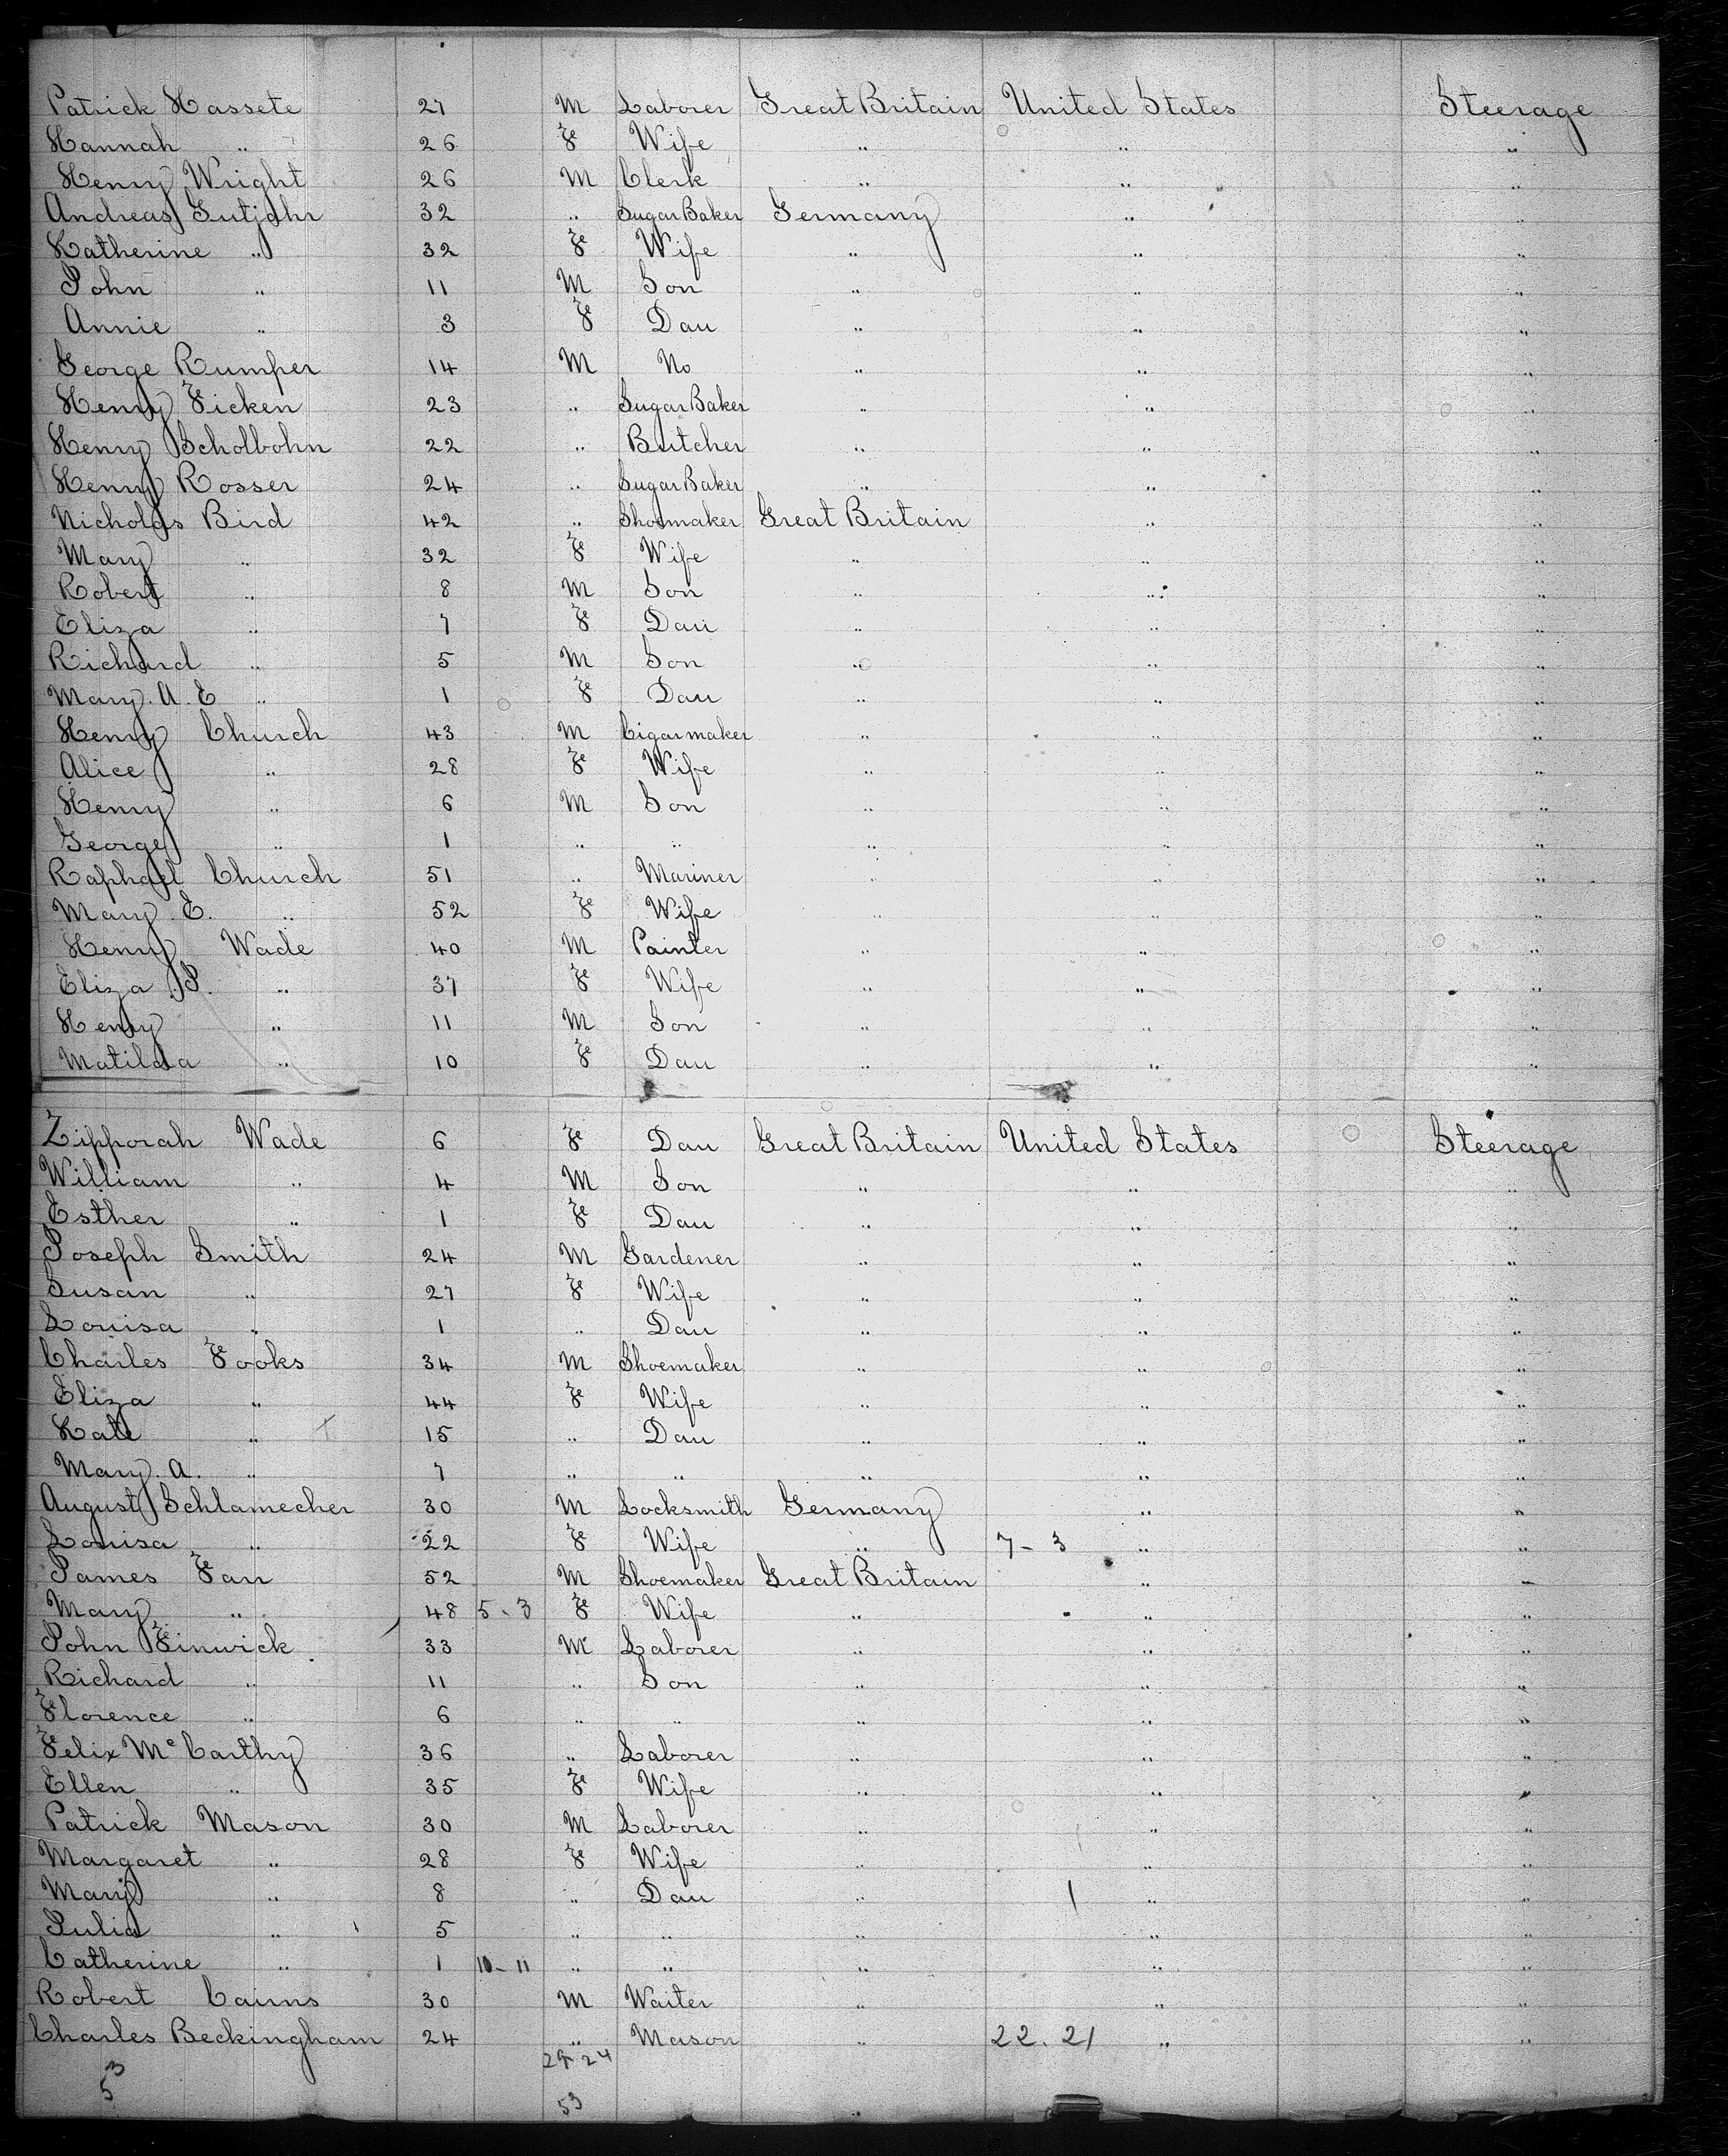 Patrick Hassete 27 M Laborer Great Britain United States Steerage
Hannah " 26 F Wife " " "
Henry Wright 26 M Clerk " " "
Andreas Gutjahr 32 " Sugar Baker Germany " "
Katherine " 32 F Wife " " "
John " 11 M Son " " "
Annie " 3 F Dau " " "
George Rumper 14 M No " " "
Henry Ficken 23 " Sugar Baker " " "
Henry Scholbohn 22 " Butcher " " "
Henry Rosser 24 " Sugar Baker " " "
Nicholas Bird 42 " Shoemaker Great Britain " "
Mary " 32 F Wife " " "
Robert " 8 M Son " " "
Eliza " 7 F Dau " " "
Richard " 5 M Son " " "
Mary. A. E " 1 F Dau " " "
Henry Church 43 M Cigarmaker " " "
Alice " 28 F Wife " " "
Henry " 6 M Son " " "
George " 1 " " " " "
Raphael Church 51 " Mariner " " "
Mary. E. " 52 F Wife " " "
Henry Wade 40 M Painter " " "
Eliza P. " 37 F Wife " " "
Henry " 11 M Son " " "
Matilda " 10 F Dau " " "
Zipporah Wade 6 F Dau Great Britain United States Steerage
William " 4 M Son " " "
Esther " 1 F Dau " " "
Joseph Smith 24 M Gardener " " "
Susan " 27 F Wife " " "
Louisa " 1 " Dau " " "
Charles Fooks 34 M Shoemaker " " "
Eliza " 44 F Wife " " "
Kate " 15 " Dau " " "
Mary. A. " 7 " " " " "
August Schlamecher 30 M Locksmith Germany " "
Louisa " 22 F Wife " 7-3 " "
James Farr 52 M Shoemaker Great Britain " "
Mary " 48 5-3 F Wife " " "
John Finwick 33 M Laborer " " "
Richard " 11 " Son " " "
Florence " 6 " " " " "
Felix McCarthy 36 " Laborer " " "
Ellen " 35 F Wife " " "
Patrick Mason 30 M Laborer " " "
Margaret " 28 F Wife " " "
Mary " 8 " Dau " " "
Julia " 5 " " " " "
Catherine " 1 10-11 " " " " "
Robert Cairns 30 M Waiter " " "
Charles Beckingham 24 " Mason " 22. 21 " "
29-24
53
53